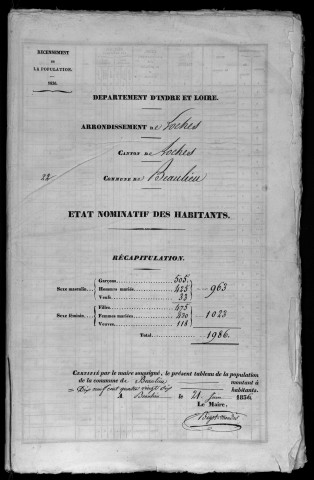 RECENSEMENT
DE
LA POPULATION.
1836.
DÉPARTEMENT D'INDRE ET LOIRE.
ARRONDISSEMENT DE Loches
CANTON DE Loches
22
COMMUNE DE Beaulieu
ETAT NOMINATIF DES HABITANTS.
RÉCAPITULATION.
Sexe masculin.
Garçons 505
Hommes mariés. 425
Veufs. 33
963
Sexe féminin.
Filles 475
Femmes mariées 430
Veuves. 118
1023
Total. 1986.
CERTIFIÉ par le maire soussigné, le présent tableau de la population
de la commune de Beaulieu montant à
Dix neuf cent quatre vingt six habitants.
A Beaulieu le 21 Juin 1836.
Le Maire,